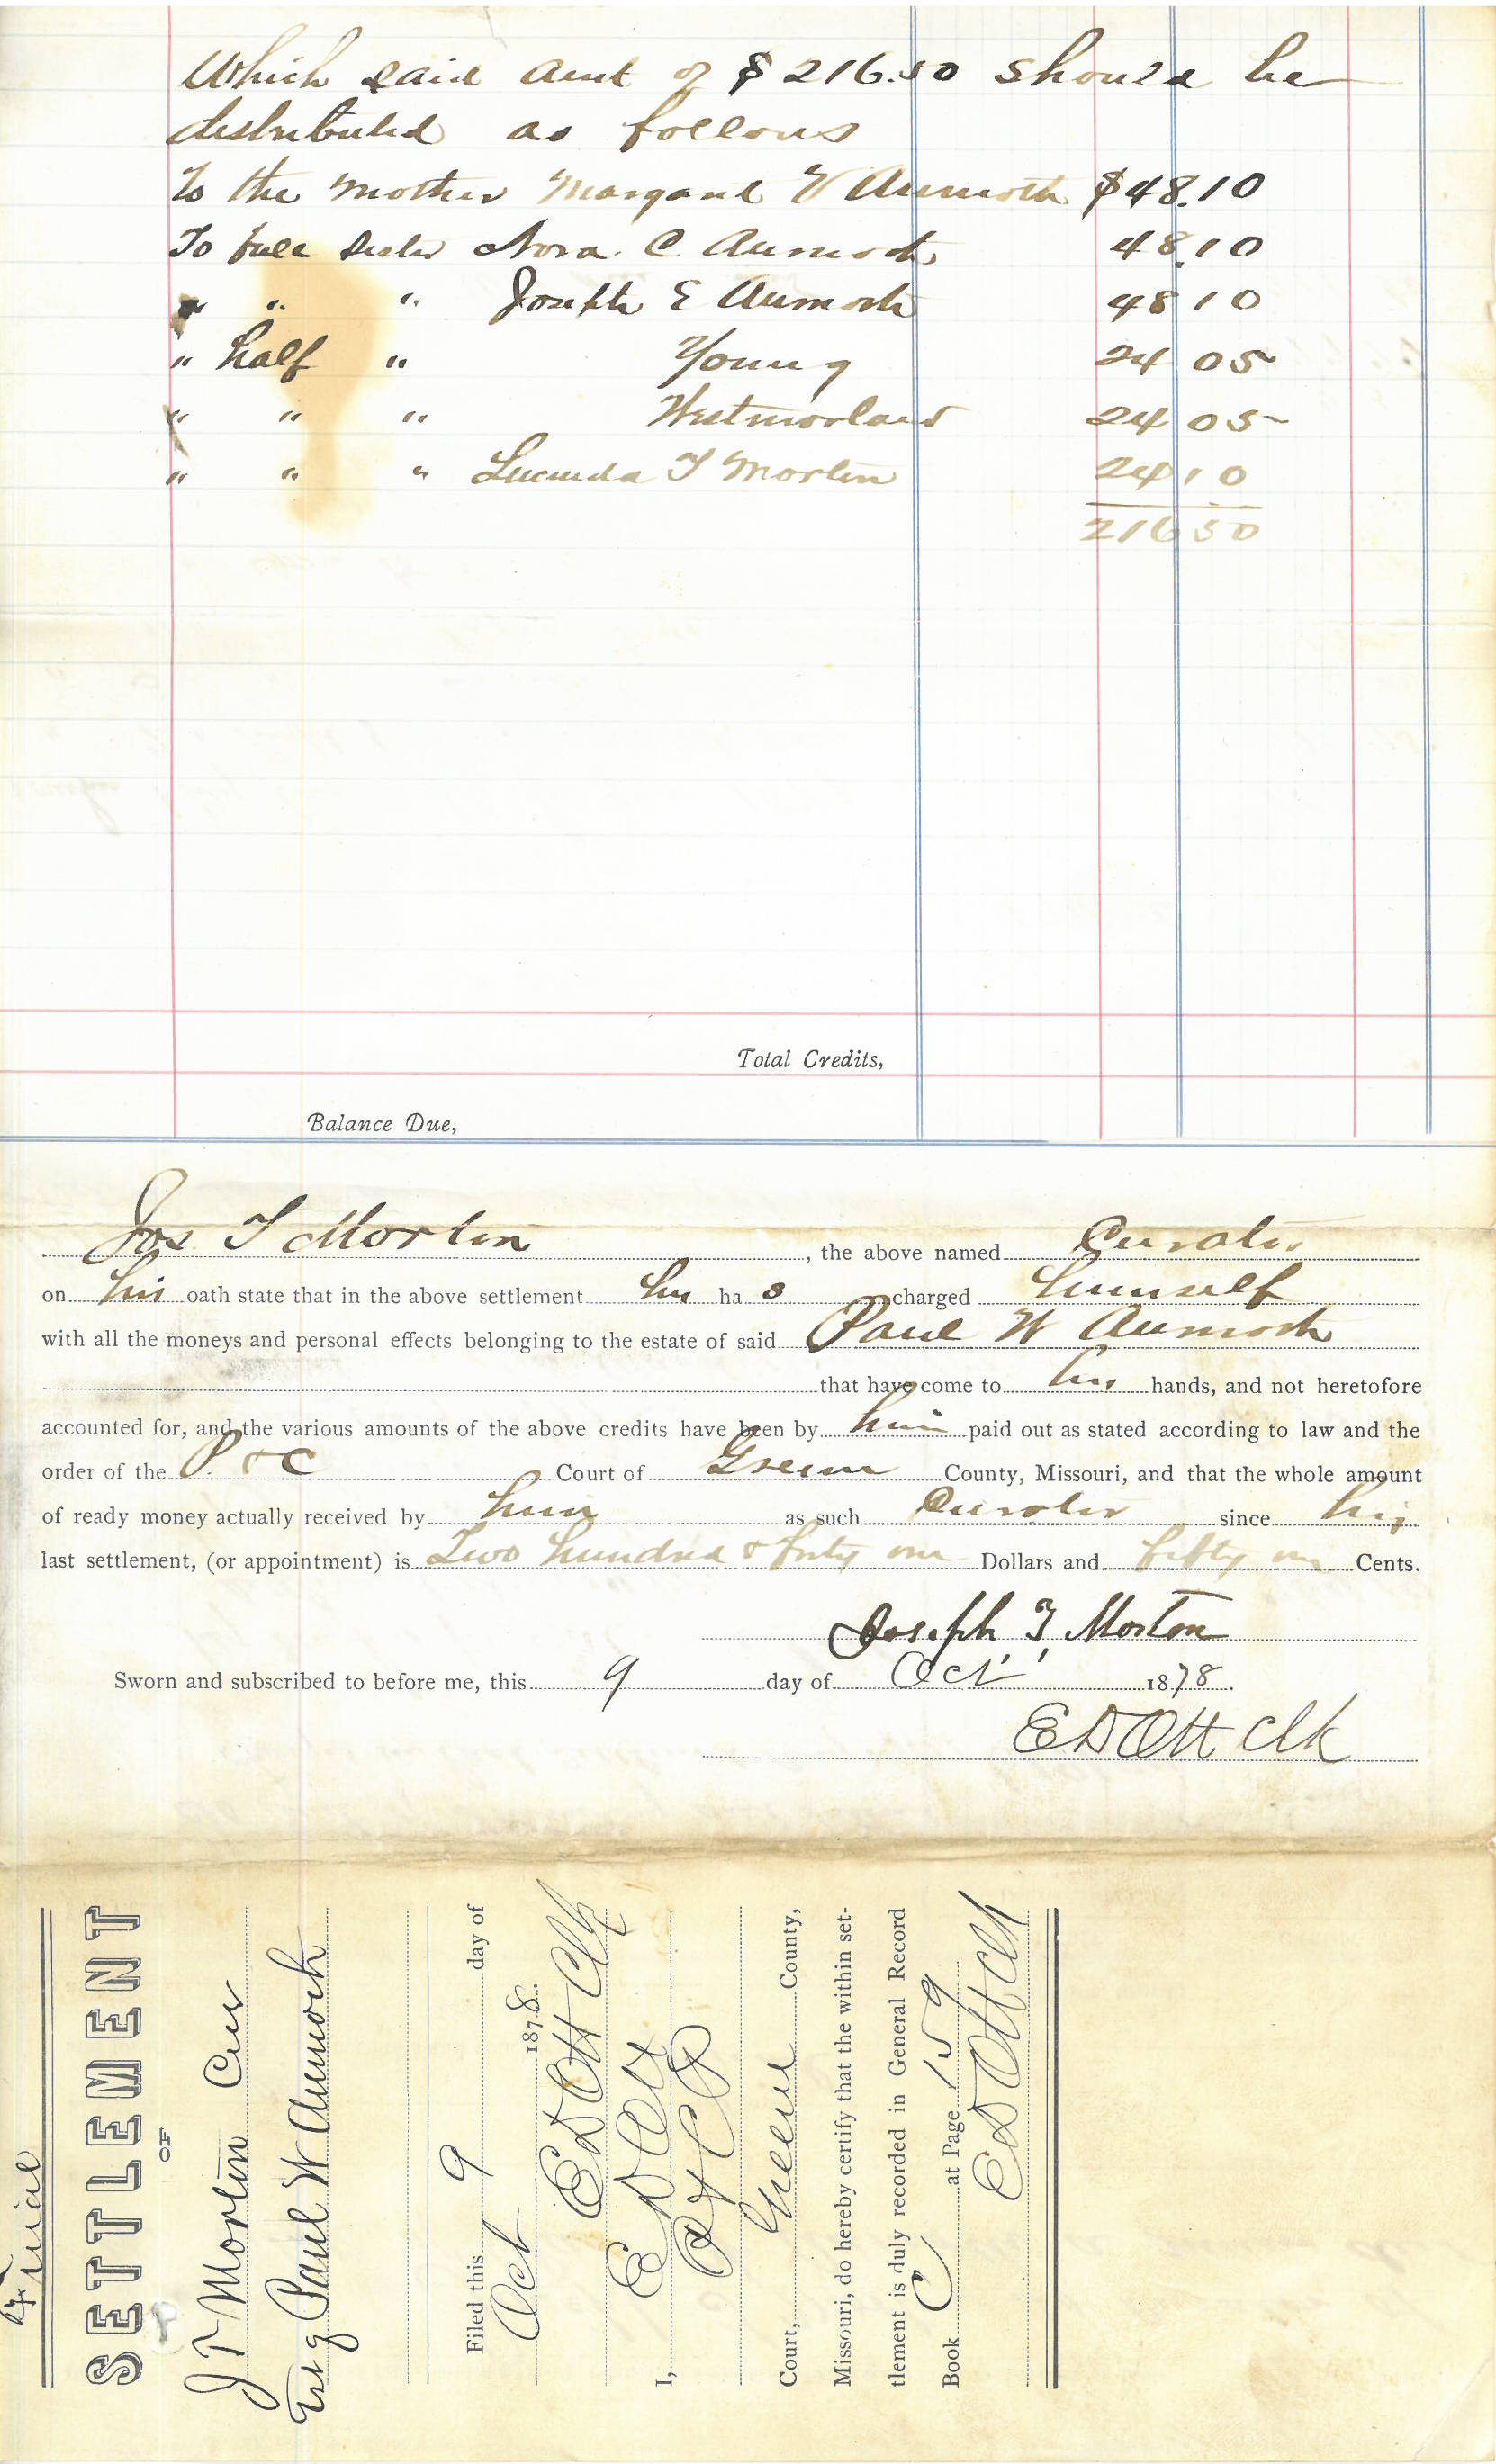 Which said amt of $216.50 should be
distributed as follows
To the Mother Margaret Aumock $48.10
To full Sister Nora C Aumock 48.10
" " " Joseph E Aumock 48 10
" half " Young 24 05
" " " Westmorland 24 05
" " " Lucinda T Morton 24 10
216 50
Total Credits,
Balance Due,
Jos T Morton, the above named Curator
on his oath state that in the above settlement he has charged himself
with all the moneys and personal effects belonging to the estate of said Paul W Aumock
that have come to his hands, and not heretofore
accounted for, and the various amounts of the above credits have been by him paid out as stated according to law and the
order of the P. & C Court of Greene County, Missouri, and that the whole amount
of ready money actually received by him as such Curator since his
last settlement, (or appointment) is Two hundred & forty one Dollars and fifty one Cents.
Joseph T. Morton
Sworn and subscribed to before me, this 9 day of Oct 1878.
E D Ott Clk
Final
SETTLEMENT
OF
J T Morton Cur
Est of Paul W Aumock
Filed this 9 day of
Oct 1878.
E D Ott Clk
I, E D Ott
Court, Greene County,
Missouri, do hereby certify that the within set-
tlement is duly recorded in General Record
Book C at Page 159
E D Ott Clk